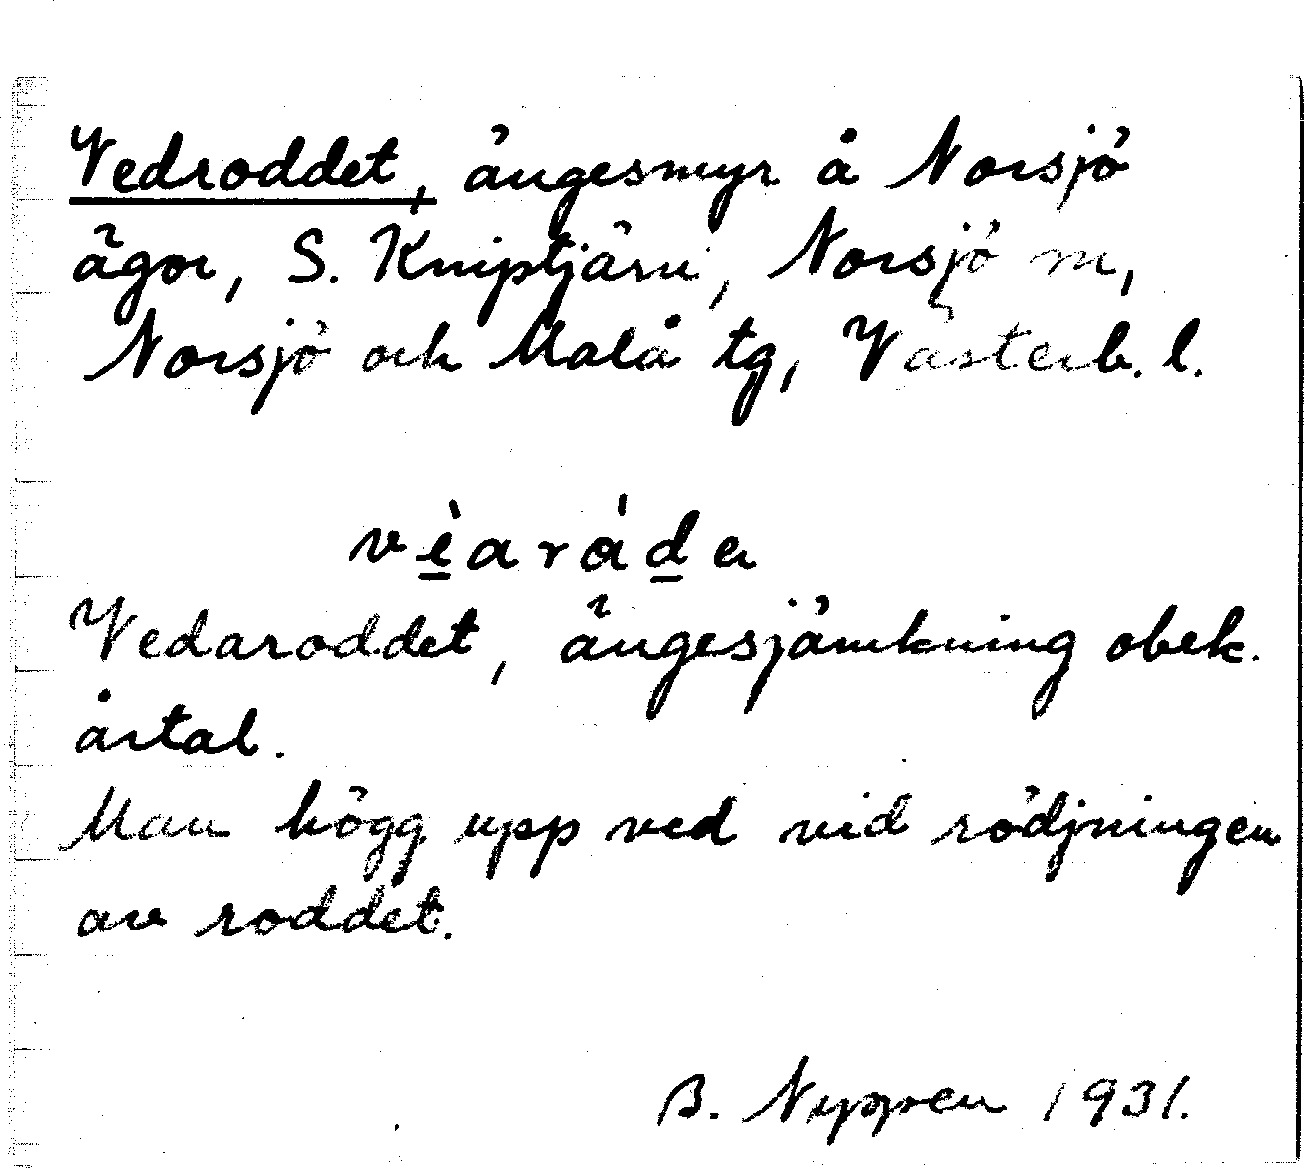 Vedroddet, ängesmyr å Norsjö
ägor, S. Kniptjärn, Norsjö m,
Norsjö och Malå tg, Västerb. l.
vèaráda
Vedaroddet, ängesjämkning obek.
årtal.
Man högg upp ved vid rödjningen
av roddet.
B. Nyppen 1931.